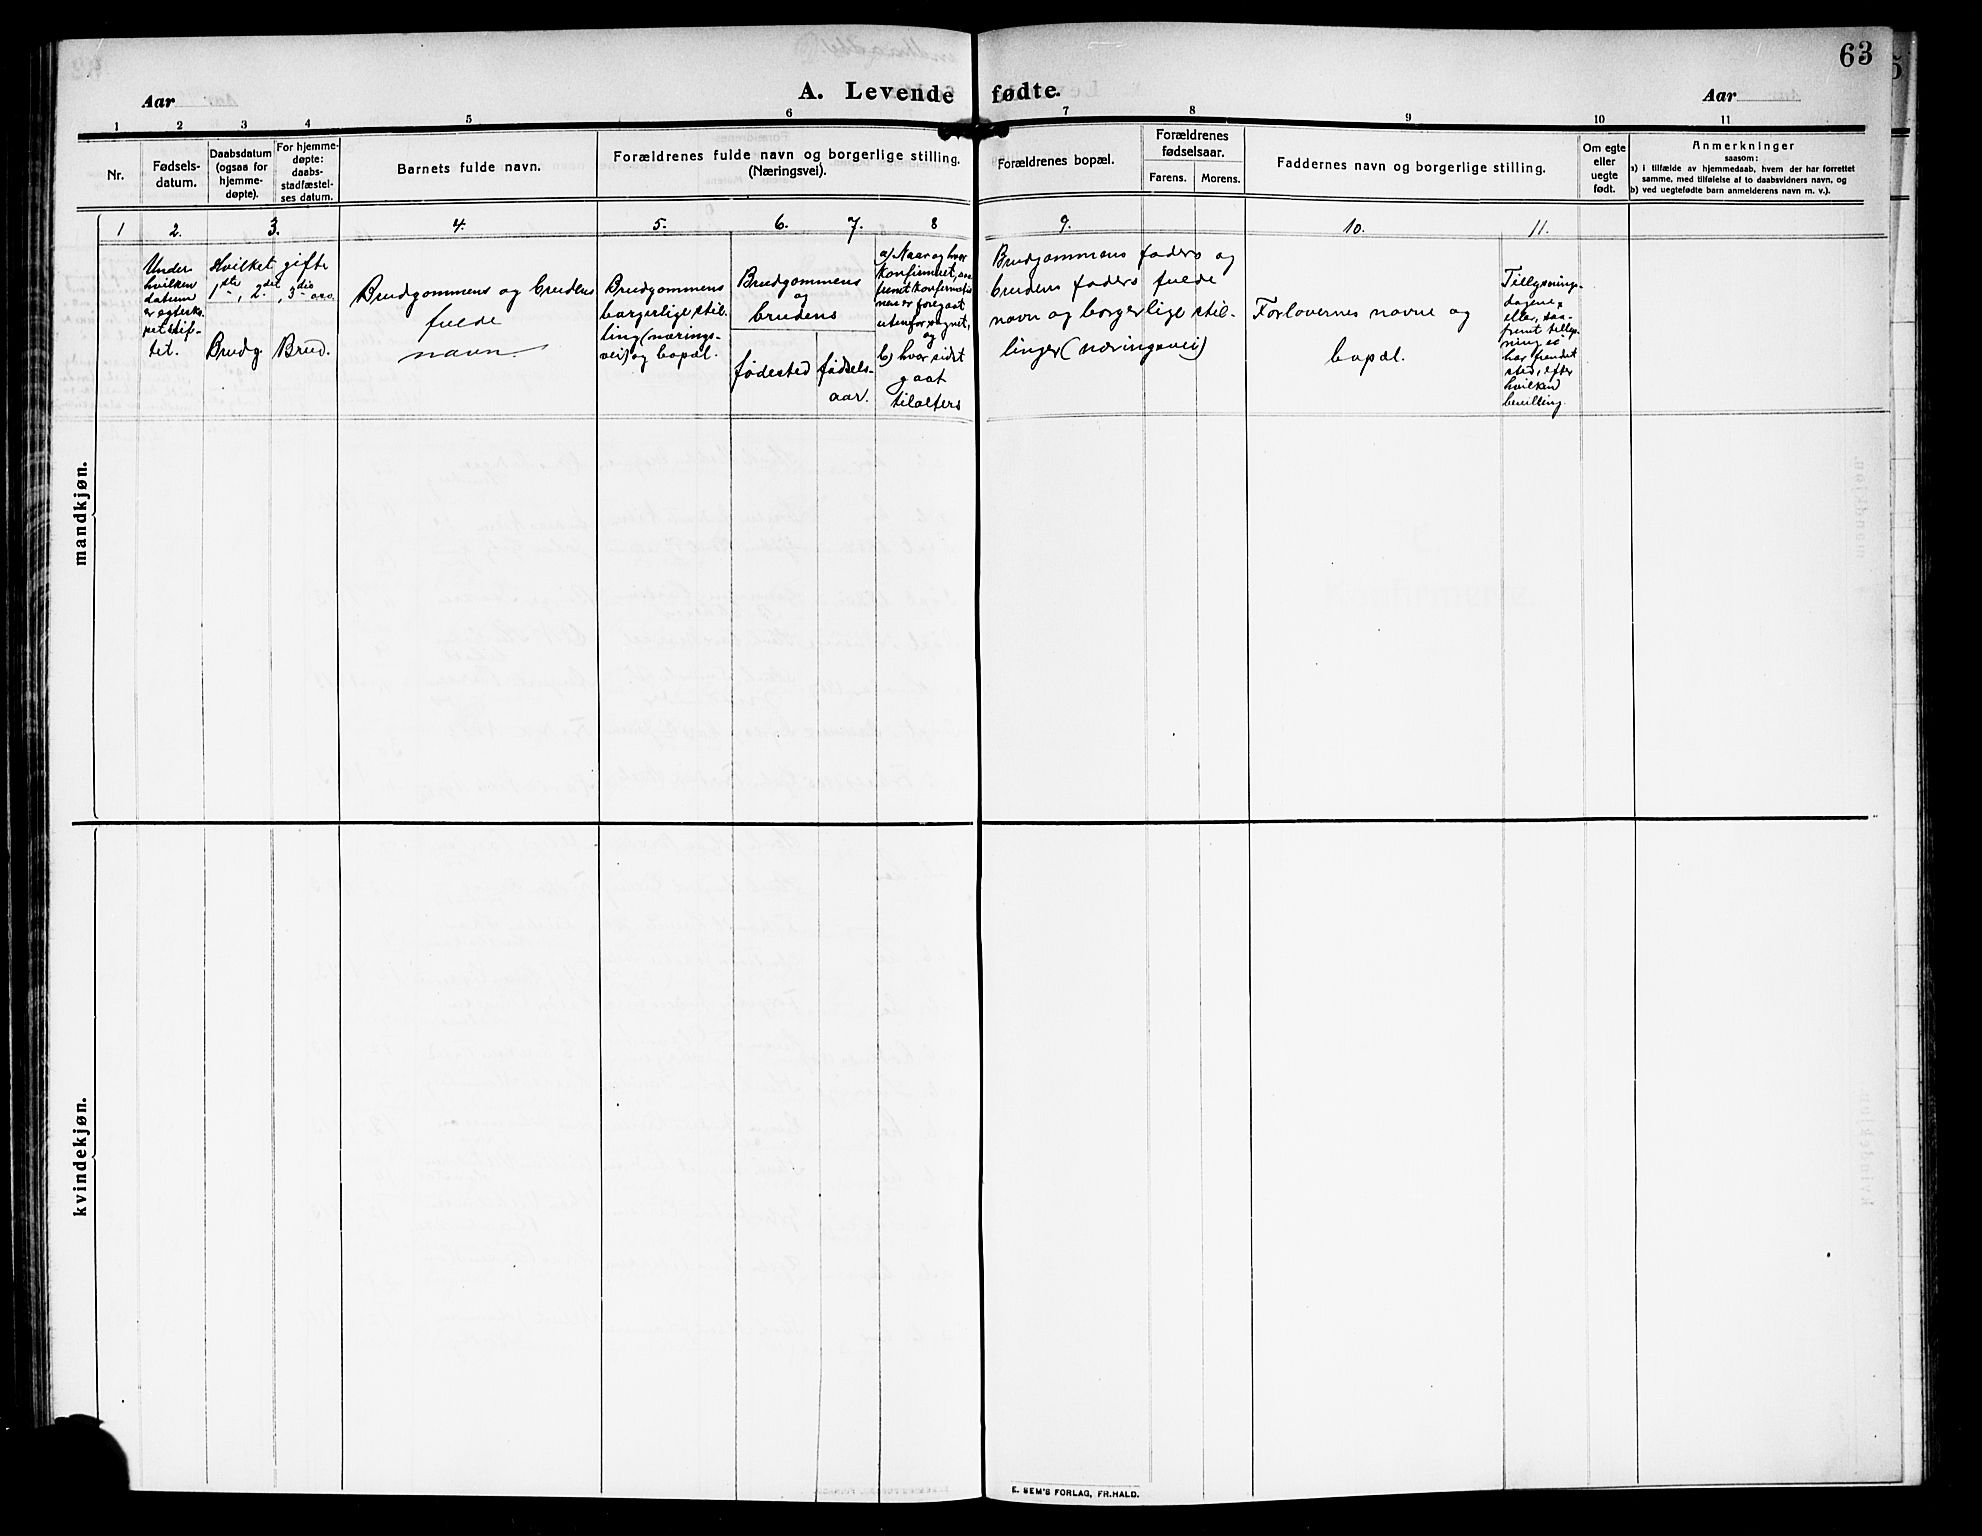 63
Aar
A. Levende fødte.
Aar
1 2 3 4 5 6 7 8 9 10 11
Nr.
Fødsels-
datum.
Daabsdatum
(ogsaa for
hjemme-
døpte).
For hjemme-
døpte:
daabs-
stadfæstel-
ses datum.
Barnets fulde navn.
Forældrenes fulde navn og borgerlige stilling.
(Næringsvei).
Forældrenes bopæl.
Forældrenes
fødselsaar.
Farens. Morens.
Faddernes navn og borgerlige stilling.
Om egte
eller
uegte
født.
Anmerkninger
saasom:
a) i tilfælde av hjemmedaab, hvem der har forrettet
samme, med tilføielse af to daabsvidners navn, og
b) ved uegtefødte barn anmelderens navn m. v.).
1 2. 3. 4. 5. 6. 7. 8 9. 10. 11.
Under
hvilken
datum
er egteska-
pet stif-
tet.
Hvilket gifte
1ste, 2det, 3die o.s.v.
Brudg. Brud.
Brudgommens og brudens
fulde
navn.
Brudgommens
borgerlige stil-
ling (nærings-
vei) og bopæl.
Brudgommens
og
brudens
fødested
fødsels-
aar.
a) Naar og hvor
konfirmeret, saa-
fremt konfirmatio-
nen er foregaat
utenfor sognet,
og
b) hvor sidst
gaat
tilalters
Brudgommens faders og
brudens faders fulde
navn og borgerlige stil-
linger (næringsvei)
Forlovernes navne og
bopæl.
Tillysnings-
dagene,
eller, saa-
fremt tillys-
ning ei
har fundet
sted, efter
hvilken
bevilling.
mandkjøn.
kvindekjøn.
E. SEM'S FORLAG, FR.HALD.